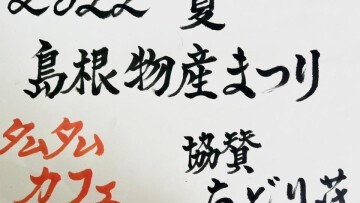 2022 夏
島根物産まつり
タムタム
カフェ
協賛
ちどり荘